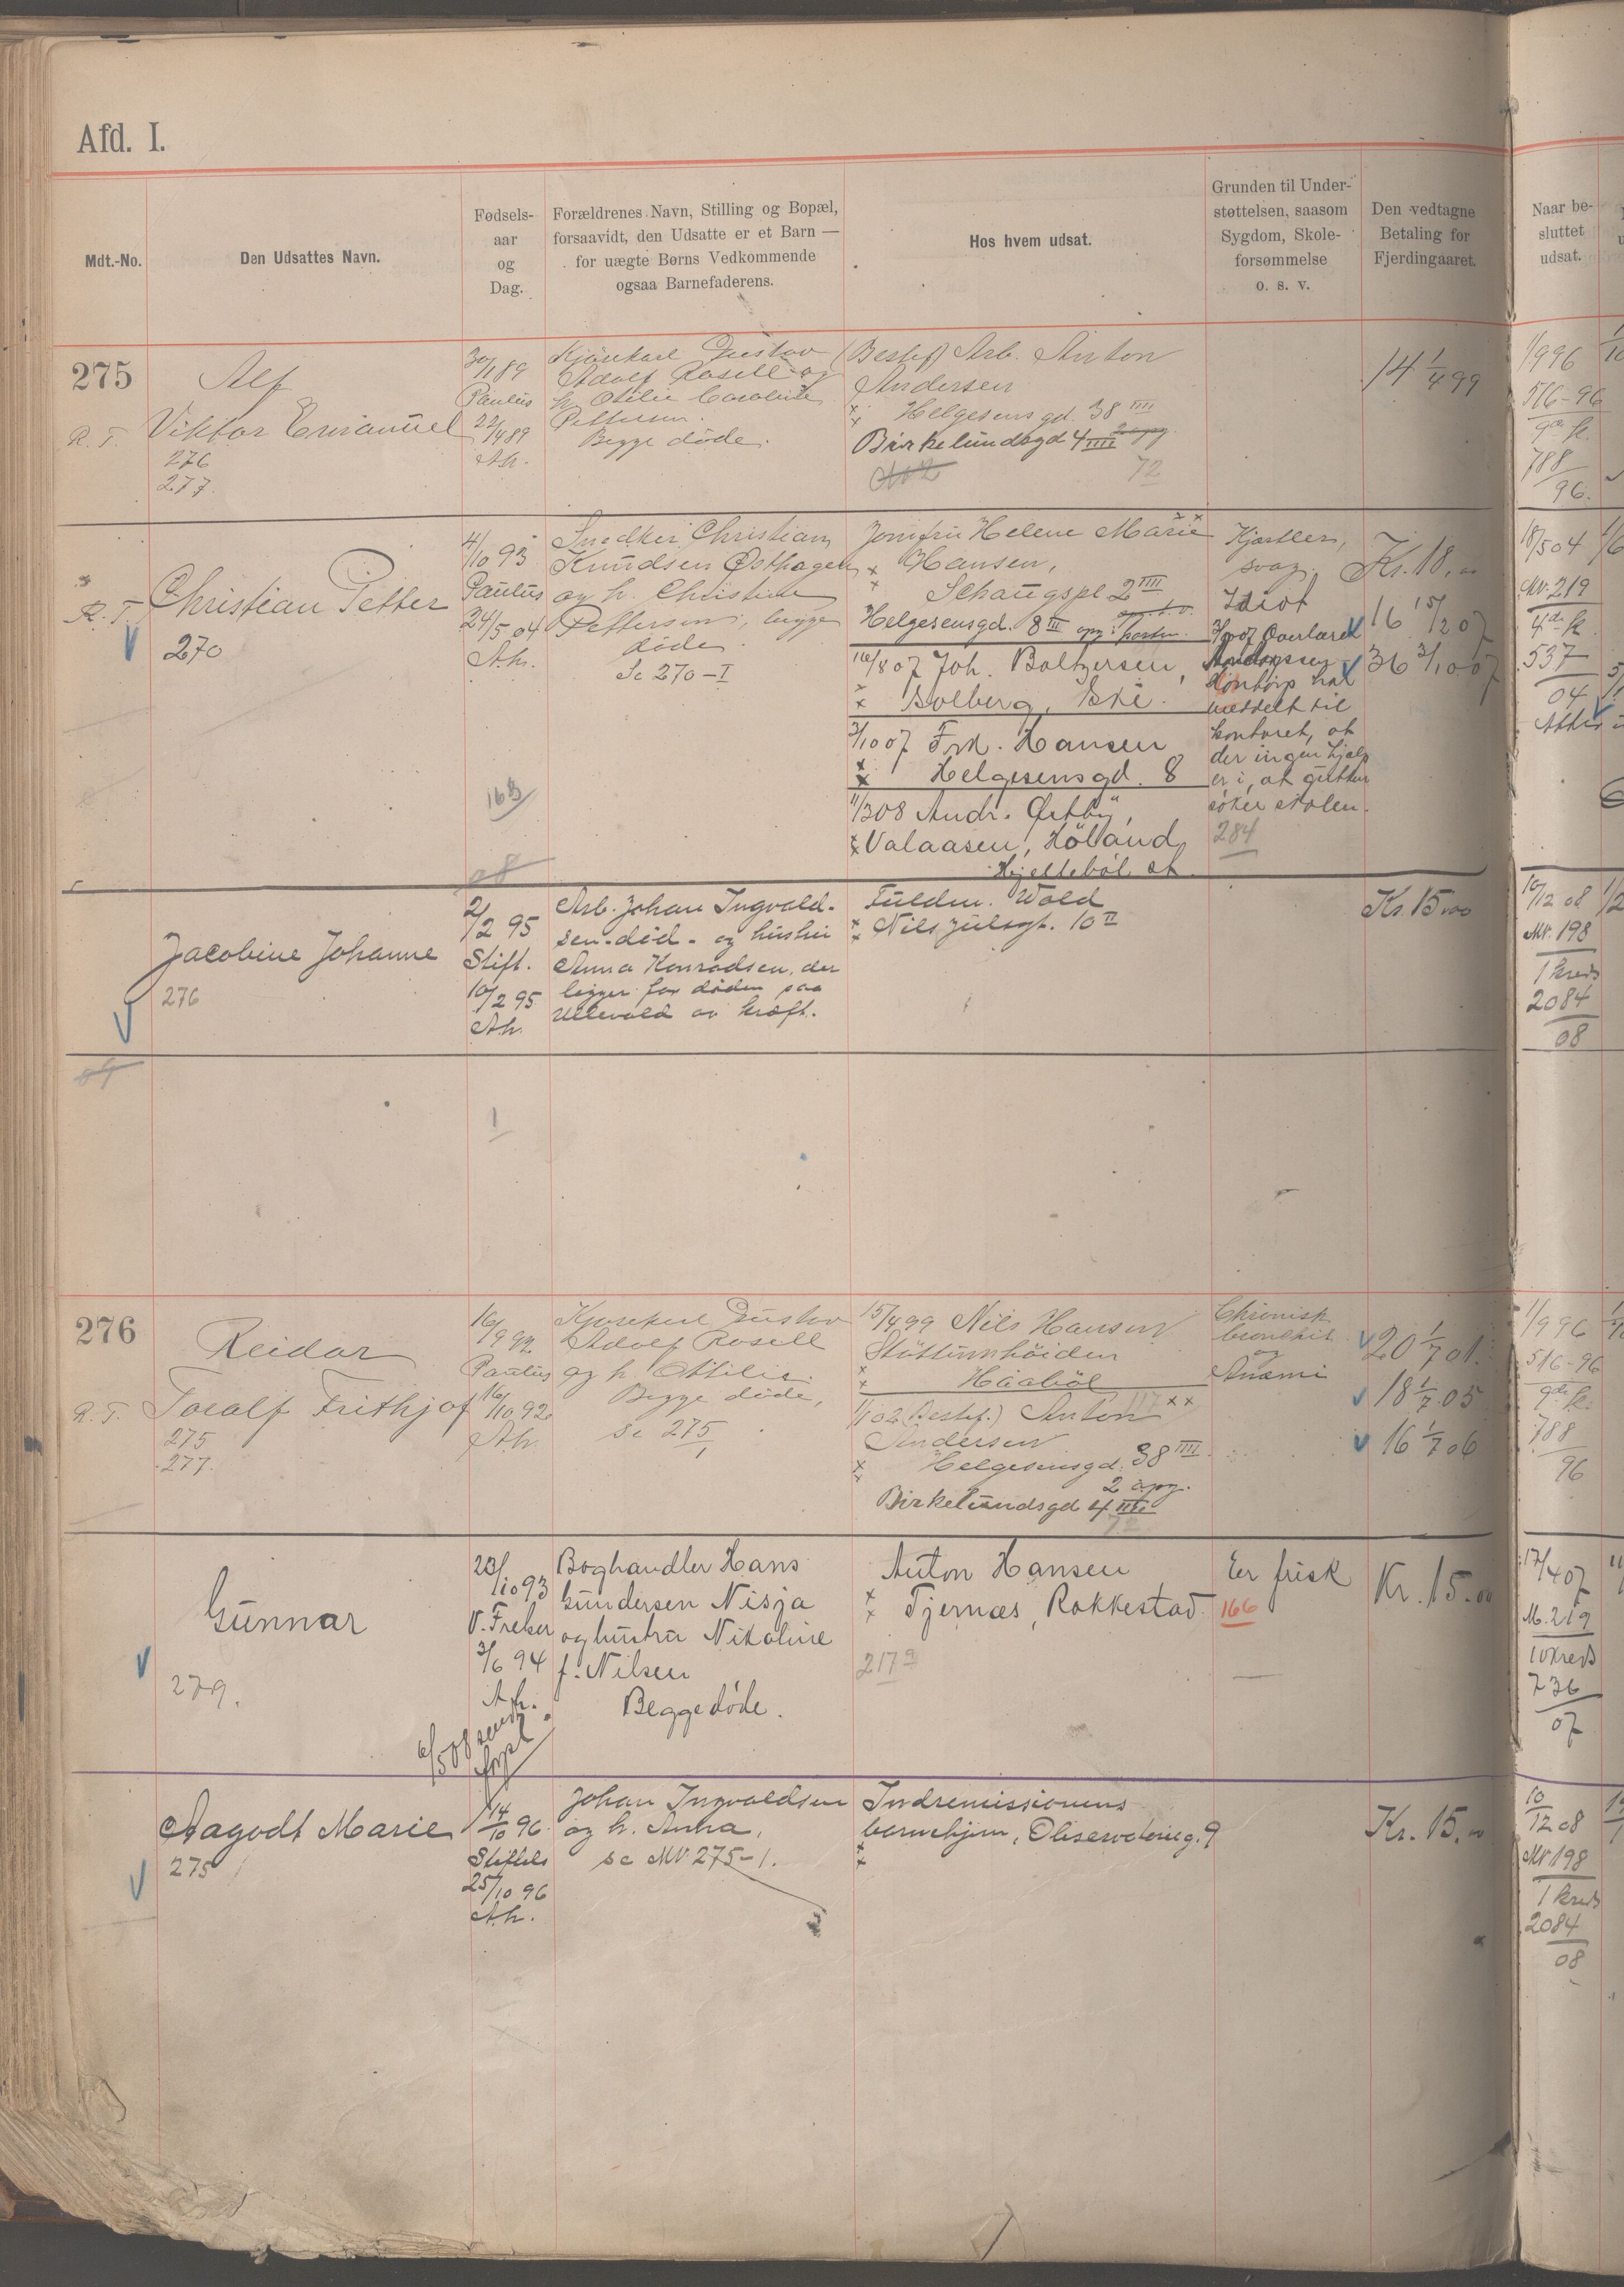 Afd. I.
Mdt.-No.
Den Udsattes Navn.
Fødsels-
aar
og
Dag.
Forældrenes Navn, Stilling og Bopæl,
forsaavidt, den Udsatte er et Barn —
for uægte Børns Vedkommende
ogsaa Barnefaderens.
Hos hvem udsat.
Grunden til Under-
støttelsen, saasom
Sygdom, Skole-
forsømmelse
o. s. v.
Den vedtagne
Betaling for
Fjerdingaaret.
Naar be-
sluttet
udsat.
275
Alf
Viktor Emanuel
R. T.
276
277.
30/1 89
Paulus
22/4 89
Ah.
Gustav
Adolf Rosell og
h. Otilie Caroline
Pettersen.
Begge døde.
(Bestef) Arb. Anton
Andersen
Helgesens gd. 38 IIII
Birkelundsgd 4 IIII
72
14 1/4 99
1/9 96
516-96
9de k.
788
96.
R. T.
Christian Petter
270
4/10 93
Paulus
24/5 04
Ah.
Snedker Christian
Knudsen Østhagen
og h. Christine
Pettersen, begge
døde.
Se 270-I
168
08
Jomfru Helene Marie
Hansen,
Schaugspl 2 IIII
Helgesensgd. 8 III opg. i porten.
16/8 07 Joh. Baltzersen,
Solberg, Ski.
3/10 07 Frk. Hansen
Helgesensgd. 8
11/3 08 Andr. Ørthy,
Valaasen, Höland
Hjelleböl st.
Kjertler,
svag.
Idiot
Overlærer
meddelt til
kontoret, at
der ingen hjælp
er i, at gutten
søker skolen.
284
Kr. 18.00
16 15/2 07
36 3/10 07
18/5 04
Mv. 219
4de k
537
04
Jacobine Johanne
276
2/2 95
Stift.
10/2 95
Ah.
Arb. Johan Ingvald-
sen - død - og hustru
Anna Konradsen, der
ligger for døden paa
Ullevold av kræft.
Fuldm. Wold
Nils Juelsgt. 10 II
Kr. 15.00
10/12 08
Mv. 198
1 kreds
2084
08
09
1
276
Reidar
Toralf Frithjof
R. T.
275
277.
16/9 92.
Paulus
16/10 92
Ah.
Gustav
Adolf Rosell
og h. Otilie.
Begge døde,
se 275/1
15/4 99 Nils Hansen
Stüttumhöiden
Haaböl
1/1 02 (Bestef.) Anton
117
Andersen
Helgesensgd. 38 IIII
2 opg.
Birkelundsgd 4 IIII
72
Chronisk
bronchit
og
Anæmi
20 1/7 01.
18 1/7 05
16 1/7 06
1/9 96
516-96
9de k.
788
96
Gunnar
279.
23/10 93
V. Freker
3/6 94
Ah.
Boghandler Hans
Gundersen Nisja
og hustru Nikoline
f. Nilsen
Begge døde.
Anton Hansen
Tjernæs, Rakkestad
217
Er frisk
166
Kr. 15.00
17/4 07
M. 219
10 kreds
736
07
Aagodt Marie
275
14/10 96
Stiftets
25/10 96
Ah.
Johan Ingvaldsen
og h. Anna,
se MV 275-1.
Indremissionens
barnehjem, Observatorieg. 9
Kr. 15.00
10/12 08
Mv 198
1 kreds
2084
08